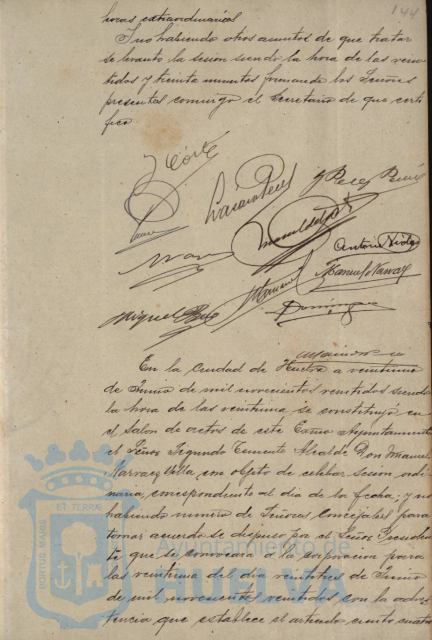 144
horas extraordinarias
Y no habiendo otros asuntos de que tratar
se levantó la sesion siendo la hora de las vein
tidos y treinta minutos firmando los Señores
presentes conmigo el Secretario de que certi
fico.
Antonio Vidal
Manuel Narvaez
Miguel
Dominguez
En la Ciudad de Huelva a veintiuno
de Junio de mil novecientos veintidos siendo
la hora de las veintiuna se constituyó en
el Salon de actos de este Excmo Ayuntamiento
el Señor Segundo Teniente Alcalde Don Manuel
Narvaez con objeto de celebrar sesión ordi
naria, correspondiente al dia de la fecha; y no
habiendo numero de Señores Concejales para
tomar acuerdo se dispuso por el Señor Presiden
te que se convocara a la Corporacion para
las veintiuna del dia veintitres de Junio
de mil novecientos veintidos con la adver
tencia que establece el articulo ciento cuatro
PORTUS MARIS ET TERRÆ
Ayuntamiento de
HUELVA